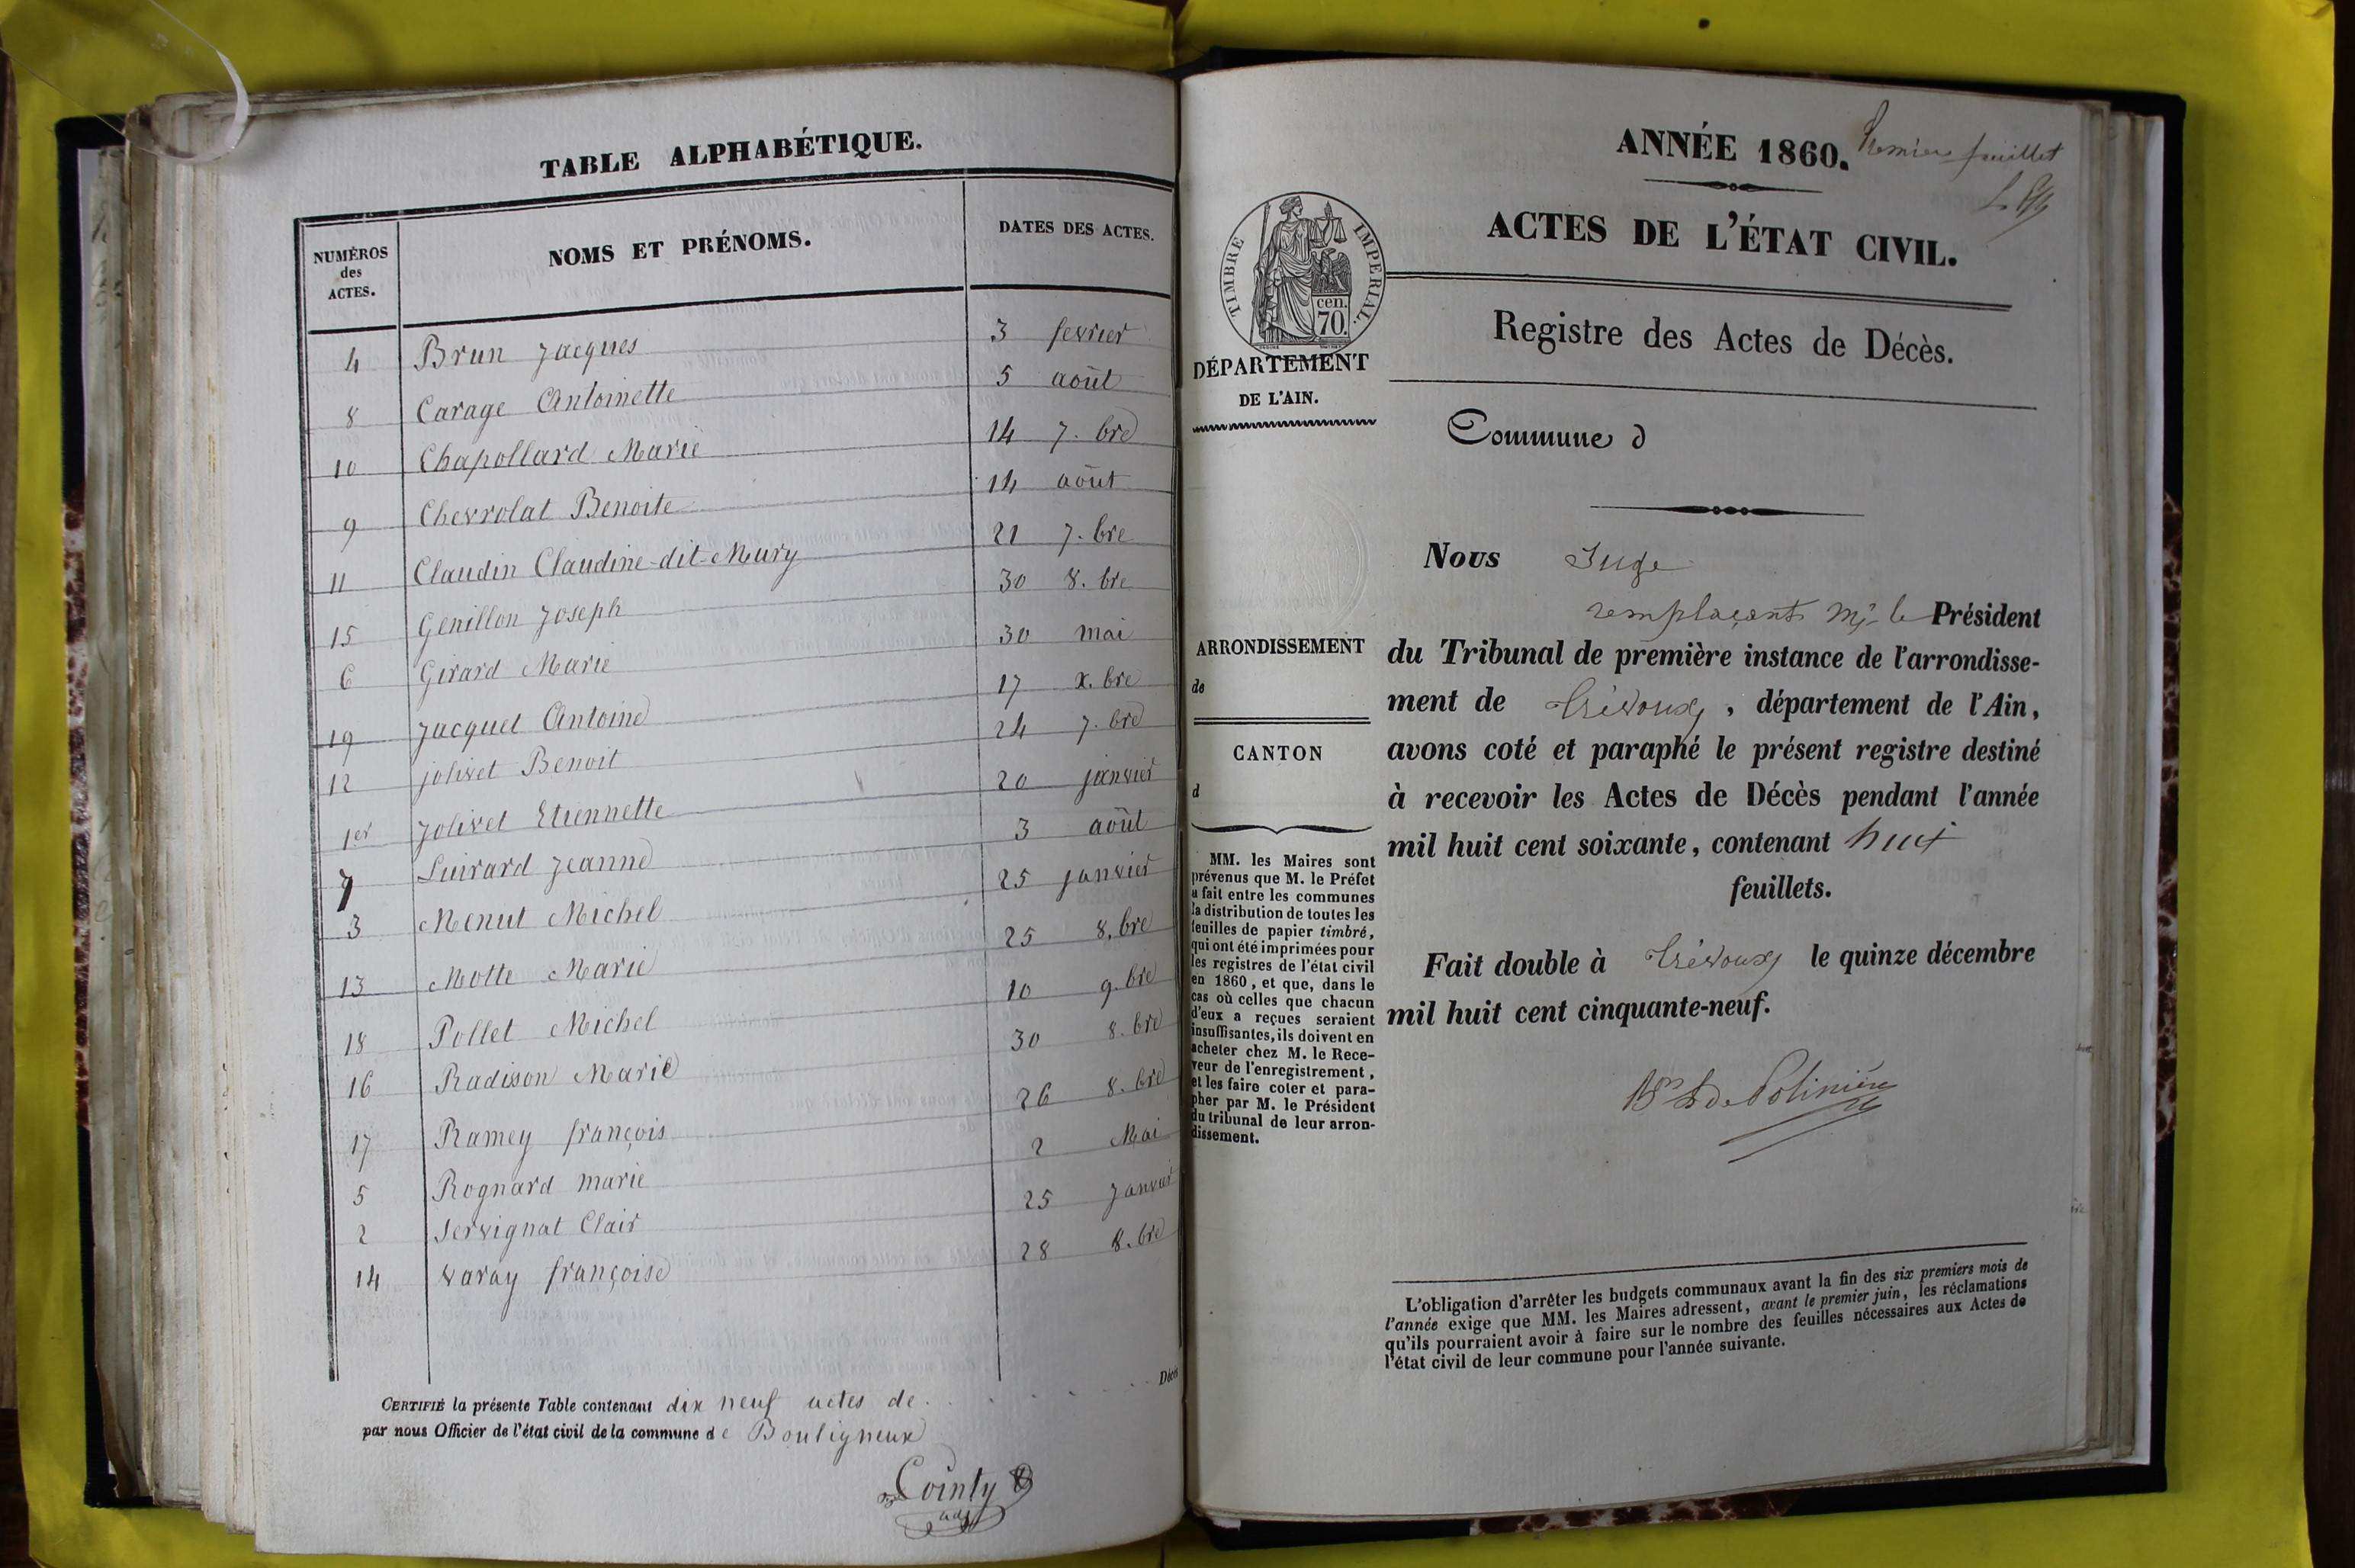 TABLE ALPHABÉTIQUE.
NUMÉROS des ACTES. NOMS ET PRÉNOMS. DATES DES ACTES.
4 Brun Jacques 3 fevrier
8 Carage Antoinette 5 août
10 Chapollard Marie 14 7.bre
9 Chevrolat Benoite 14 août
11 Claudin Claudine-dit-Mury 21 7.bre
15 Genillon Joseph 30 8.bre
6 Girard Marie 30 mai
19 Jacquet Antoine 17 x.bre
12 jolivet Benoit 24 7.bre
1er Jolivet Etiennette 20 janvier
7 Luirard Jeanne 3 août
3 Menut Michel 25 janvier
13 Motte Marie 25 8.bre
18 Pollet Michel 10 9.bre
16 Radison Marie 30 8.bre
17 Ramey françois 26 8.bre
5 Rognard marie 2 Mai
2 Servignat Clair 25 Janvier
14 varay françoise 28 8.bre
CERTIFIÉ la présente Table contenant dix neuf actes de Décès
par nous Officier de l'état civil de la commune de Bouligneux
Cointy
adj
ANNÉE 1860. Premier feuillet
ACTES DE L'ÉTAT CIVIL.
TIMBRE IMPERIAL.
cen.
70.
Registre des Actes de Décès.
DÉPARTEMENT
DE L'AIN.
Commune d
Nous Juge
remplaçant Mr le Président
du Tribunal de première instance de l'arrondisse-
ment de Trévoux, département de l'Ain,
avons coté et paraphé le présent registre destiné
à recevoir les Actes de Décès pendant l'année
mil huit cent soixante, contenant huit
feuillets.
Fait double à Trévoux le quinze décembre
mil huit cent cinquante-neuf.
de Polinière
ARRONDISSEMENT
de
CANTON
d
MM. les Maires sont
prévenus que M. le Préfet
a fait entre les communes
la distribution de toutes les
feuilles de papier timbré,
qui ont été imprimées pour
les registres de l'état civil
en 1860, et que, dans le
cas où celles que chacun
d'eux a reçues seraient
insuffisantes, ils doivent en
acheter chez M. le Rece-
veur de l'enregistrement,
et les faire coter et para-
pher par M. le Président
du tribunal de leur arron-
dissement.
L'obligation d'arrêter les budgets communaux avant la fin des six premiers mois de
l'année exige que MM. les Maires adressent, avant le premier juin, les réclamations
qu'ils pourraient avoir à faire sur le nombre des feuilles nécessaires aux Actes de
l'état civil de leur commune pour l'année suivante.